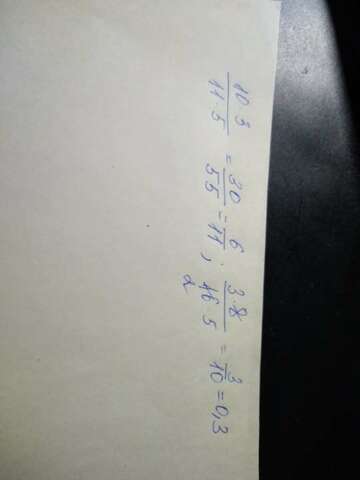 10·3/11·5 = 30/55 = 6/11 ; 3·8/16·5 = 3/10 = 0,3
2